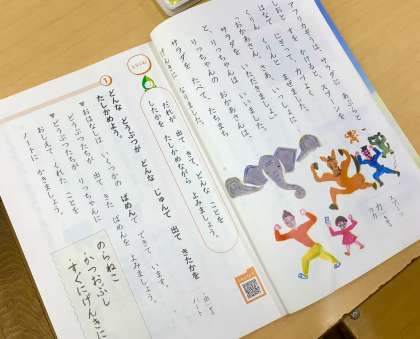 アフリカぞうは、サラダに あぶらと
しおと すを かけると、スプーンを
はなで にぎって、
くりん くりんと まぜました。
「おかあさん、さあ、いっしょに
いただきましょう。」
と、りっちゃんは いいました。
サラダを りっちゃんの おかあさんは、
たべて、たちまち
げんきに なりました。
だれが 出て きて、どんな ことを
したかを たしかめながら よみましょう。
1
どんな どうぶつが どんな じゅんで 出て きたかを
たしかめよう。
▼おはなしは、いくつかの ばめんで できて います。
どうぶつたちが 出て きた ばめんを よみましょう。
▼どうぶつたちが りっちゃんに
おしえて くれた ことを
ノートに かきましょう。
ノート
のらねこ
・かつおぶし
すぐにげんきに